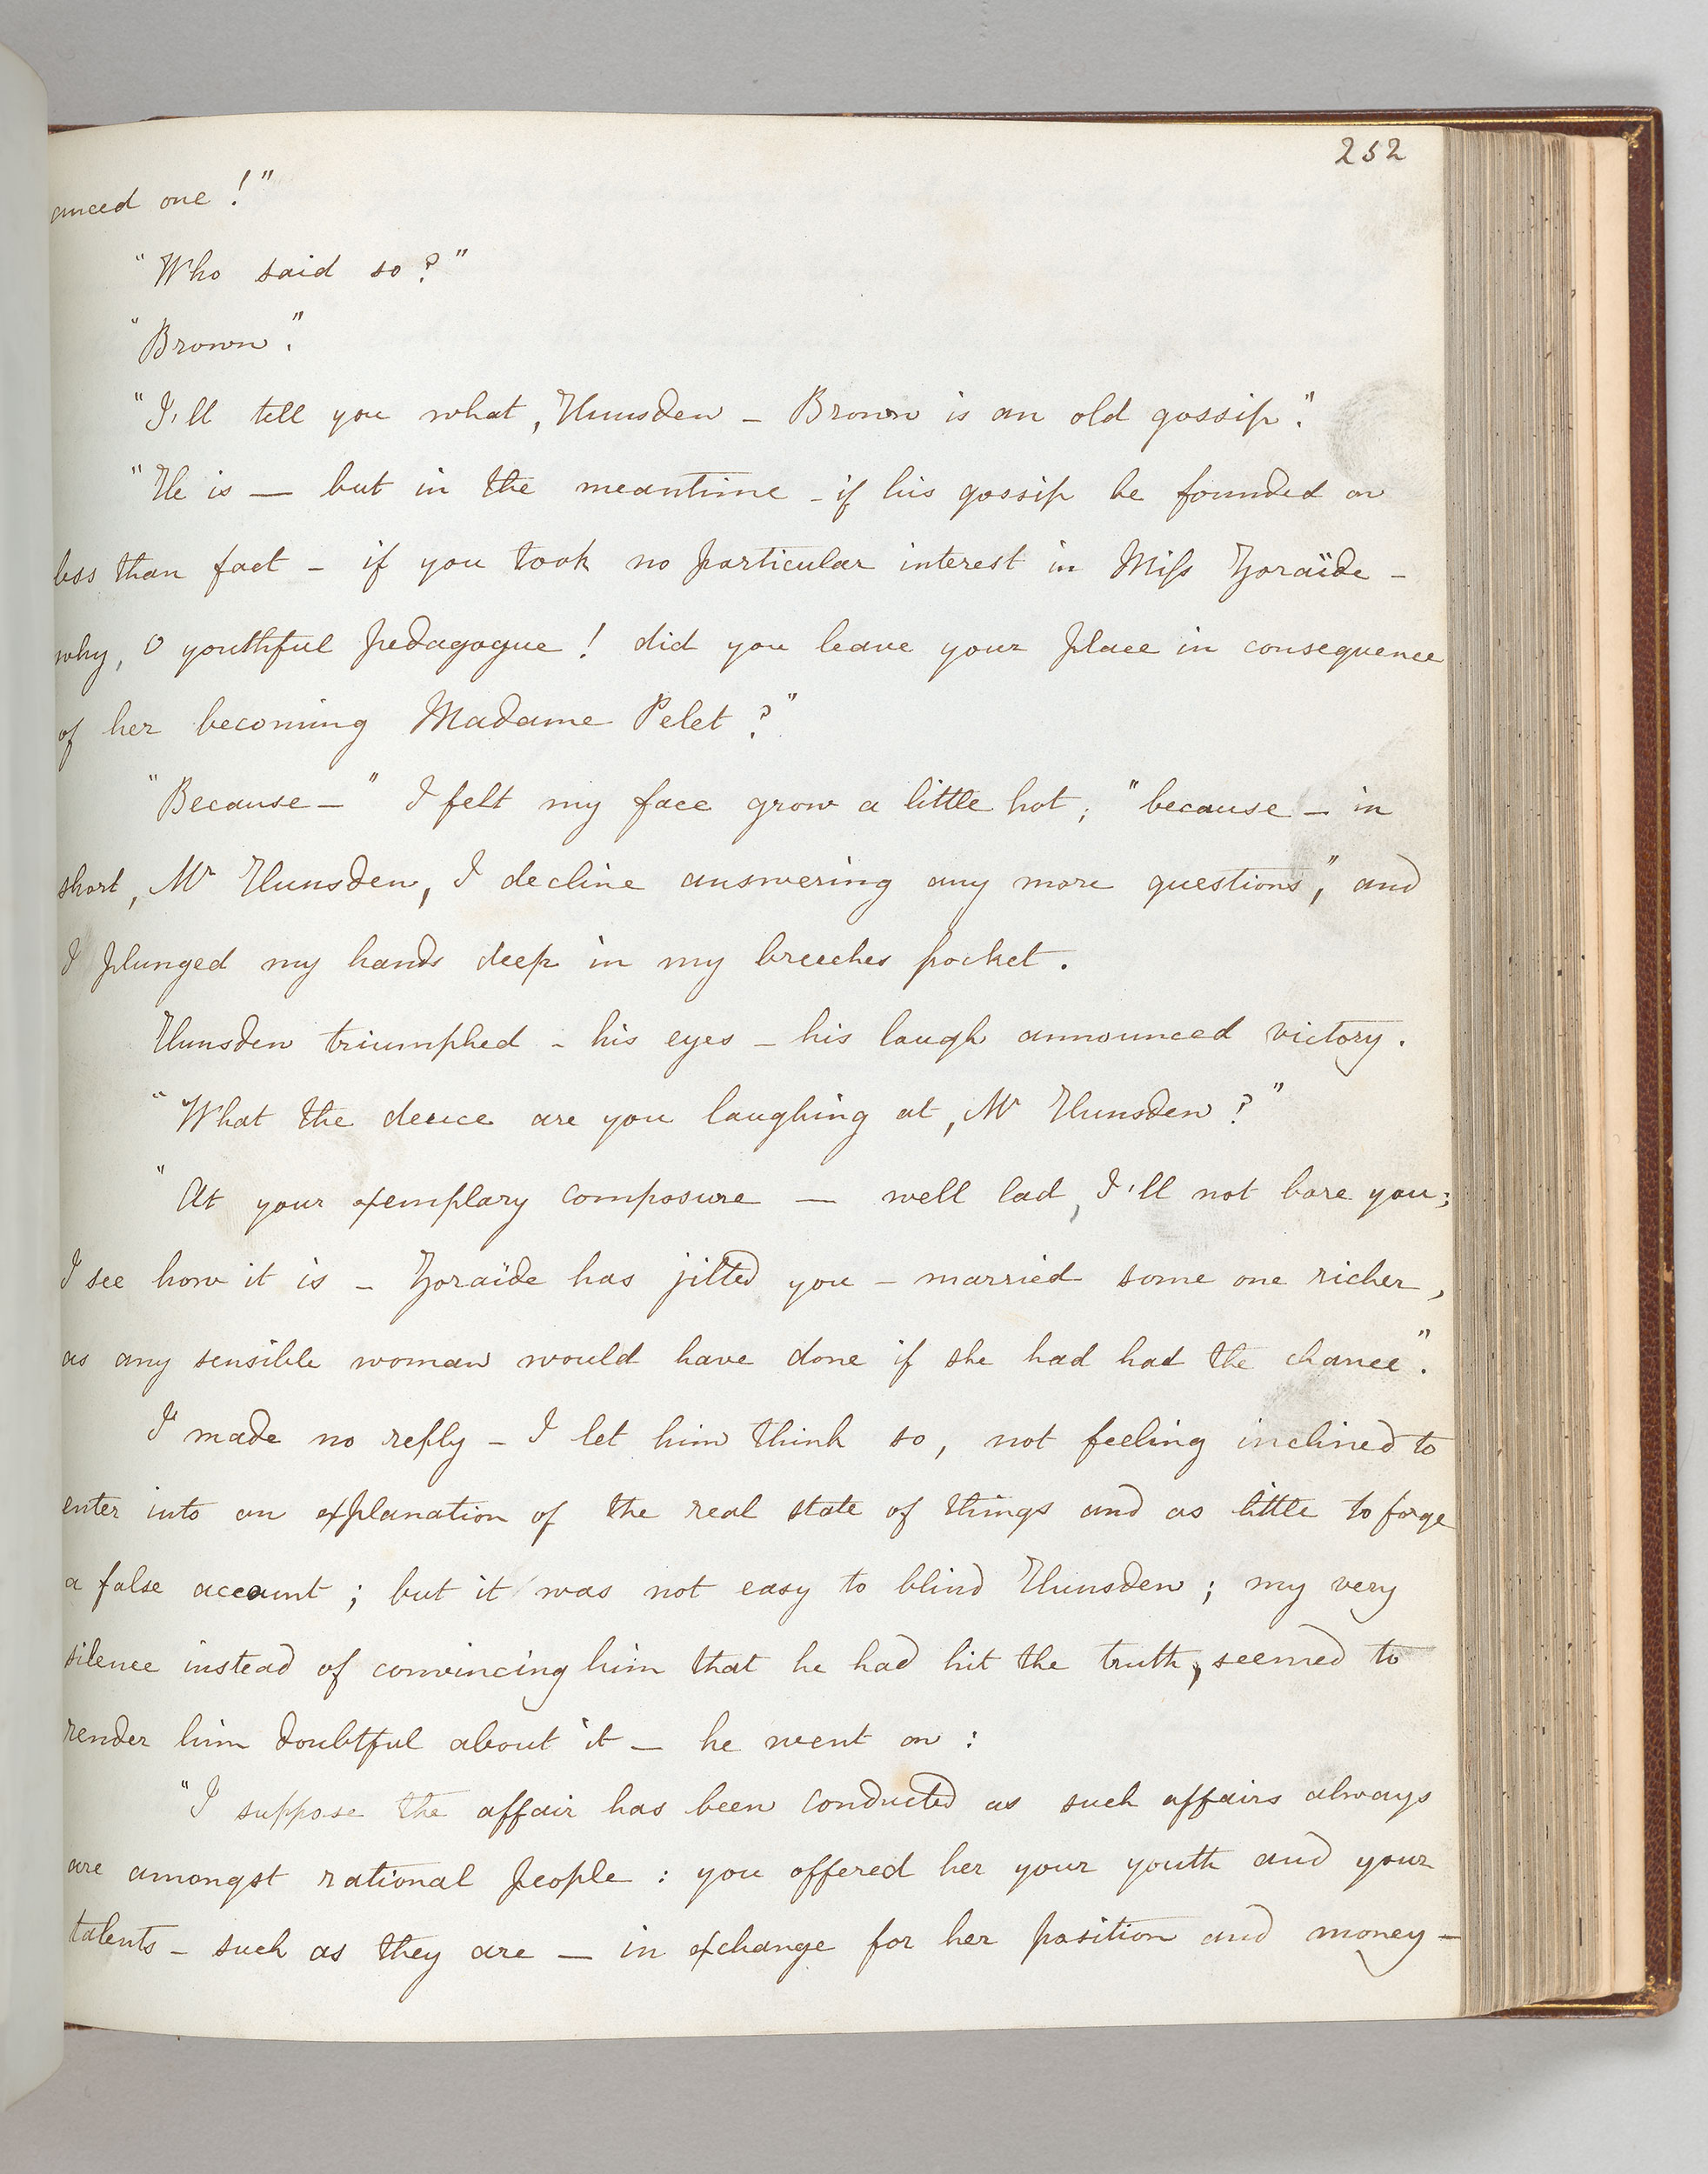 252
anced one!"
"Who said so?"
"Brown".
"I'll tell you what, Hunsden – Brown is an old gossip".
"He is — but in the meantime – if his gossip be founded on
less than fact – if you took no particular interest in Miss Zoraïde –
why, O youthful pedagogue! did you leave your place in consequence
of her becoming Madame Pelet?"
"Because –" I felt my face grow a little hot; "because – in
short, Mr Hunsden, I decline answering any more questions", and
I plunged my hands deep in my breeches pocket.
Hunsden triumphed – his eyes – his laugh announced victory.
"What the deuce are you laughing at, Mr Hunsden?"
"At your exemplary composure — well lad, I'll not bore you;
I see how it is – Zoraïde has jilted you – married some one richer,
as any sensible woman would have done if she had had the chance".
I made no reply – I let him think so, not feeling inclined to
enter into an explanation of the real state of things and as little to forge
a false account; but it was not easy to blind Hunsden; my very
silence instead of convincing him that he had hit the truth, seemed to
render him doubtful about it – he went on:
"I suppose the affair has been conducted as such affairs always
are amongst rational people: you offered her your youth and your
talents – such as they are — in exchange for her position and money –